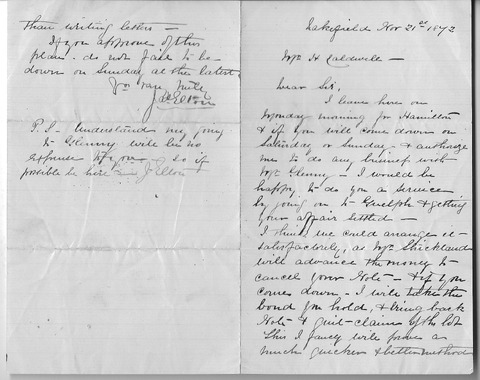 Lakefield Nov 21st 1872
Mr H Caldwell —
Dear Sir,
I leave here on
Monday morning for Hamilton
& if you will come down on
Saturday or Sunday — & authorize
me to do any business with
Mr Glenny — I would be
happy to do you a service
by going on to Guelph & getting
your affair settled —
I think we could arrange it
satisfactorily, as Mr Strickland
will advance the money to
cancel your Note — & if you
come down — I will take the
bond you hold, & bring back
Note & quit-claim of the lot
This I fancy will prove a
much quicker & better method
than writing letters —
If you approve of this
plan — do not fail to be
down on Sunday at the latest
Yrs very truly
P.S — Understand my going
to Glenny will be no
expense to you — so if
possible be here —